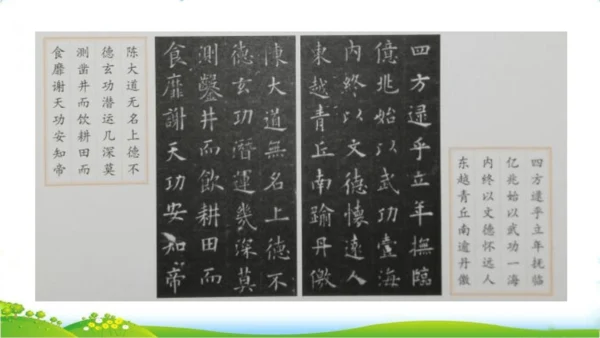 四方逮乎立年抚临
亿兆始以武功一海
内终以文德怀远人
东越青丘南逾丹徼
四方逮乎立年撫臨
億兆始以武功壹海
內終以文德懷遠人
東越青丘南踰丹徼
陳大道無名上德不
德玄功潛運幾深莫
測鑿井而飲耕田而
食靡謝天功安知帝
陈大道无名上德不
德玄功潜运几深莫
测凿井而饮耕田而
食靡谢天功安知帝